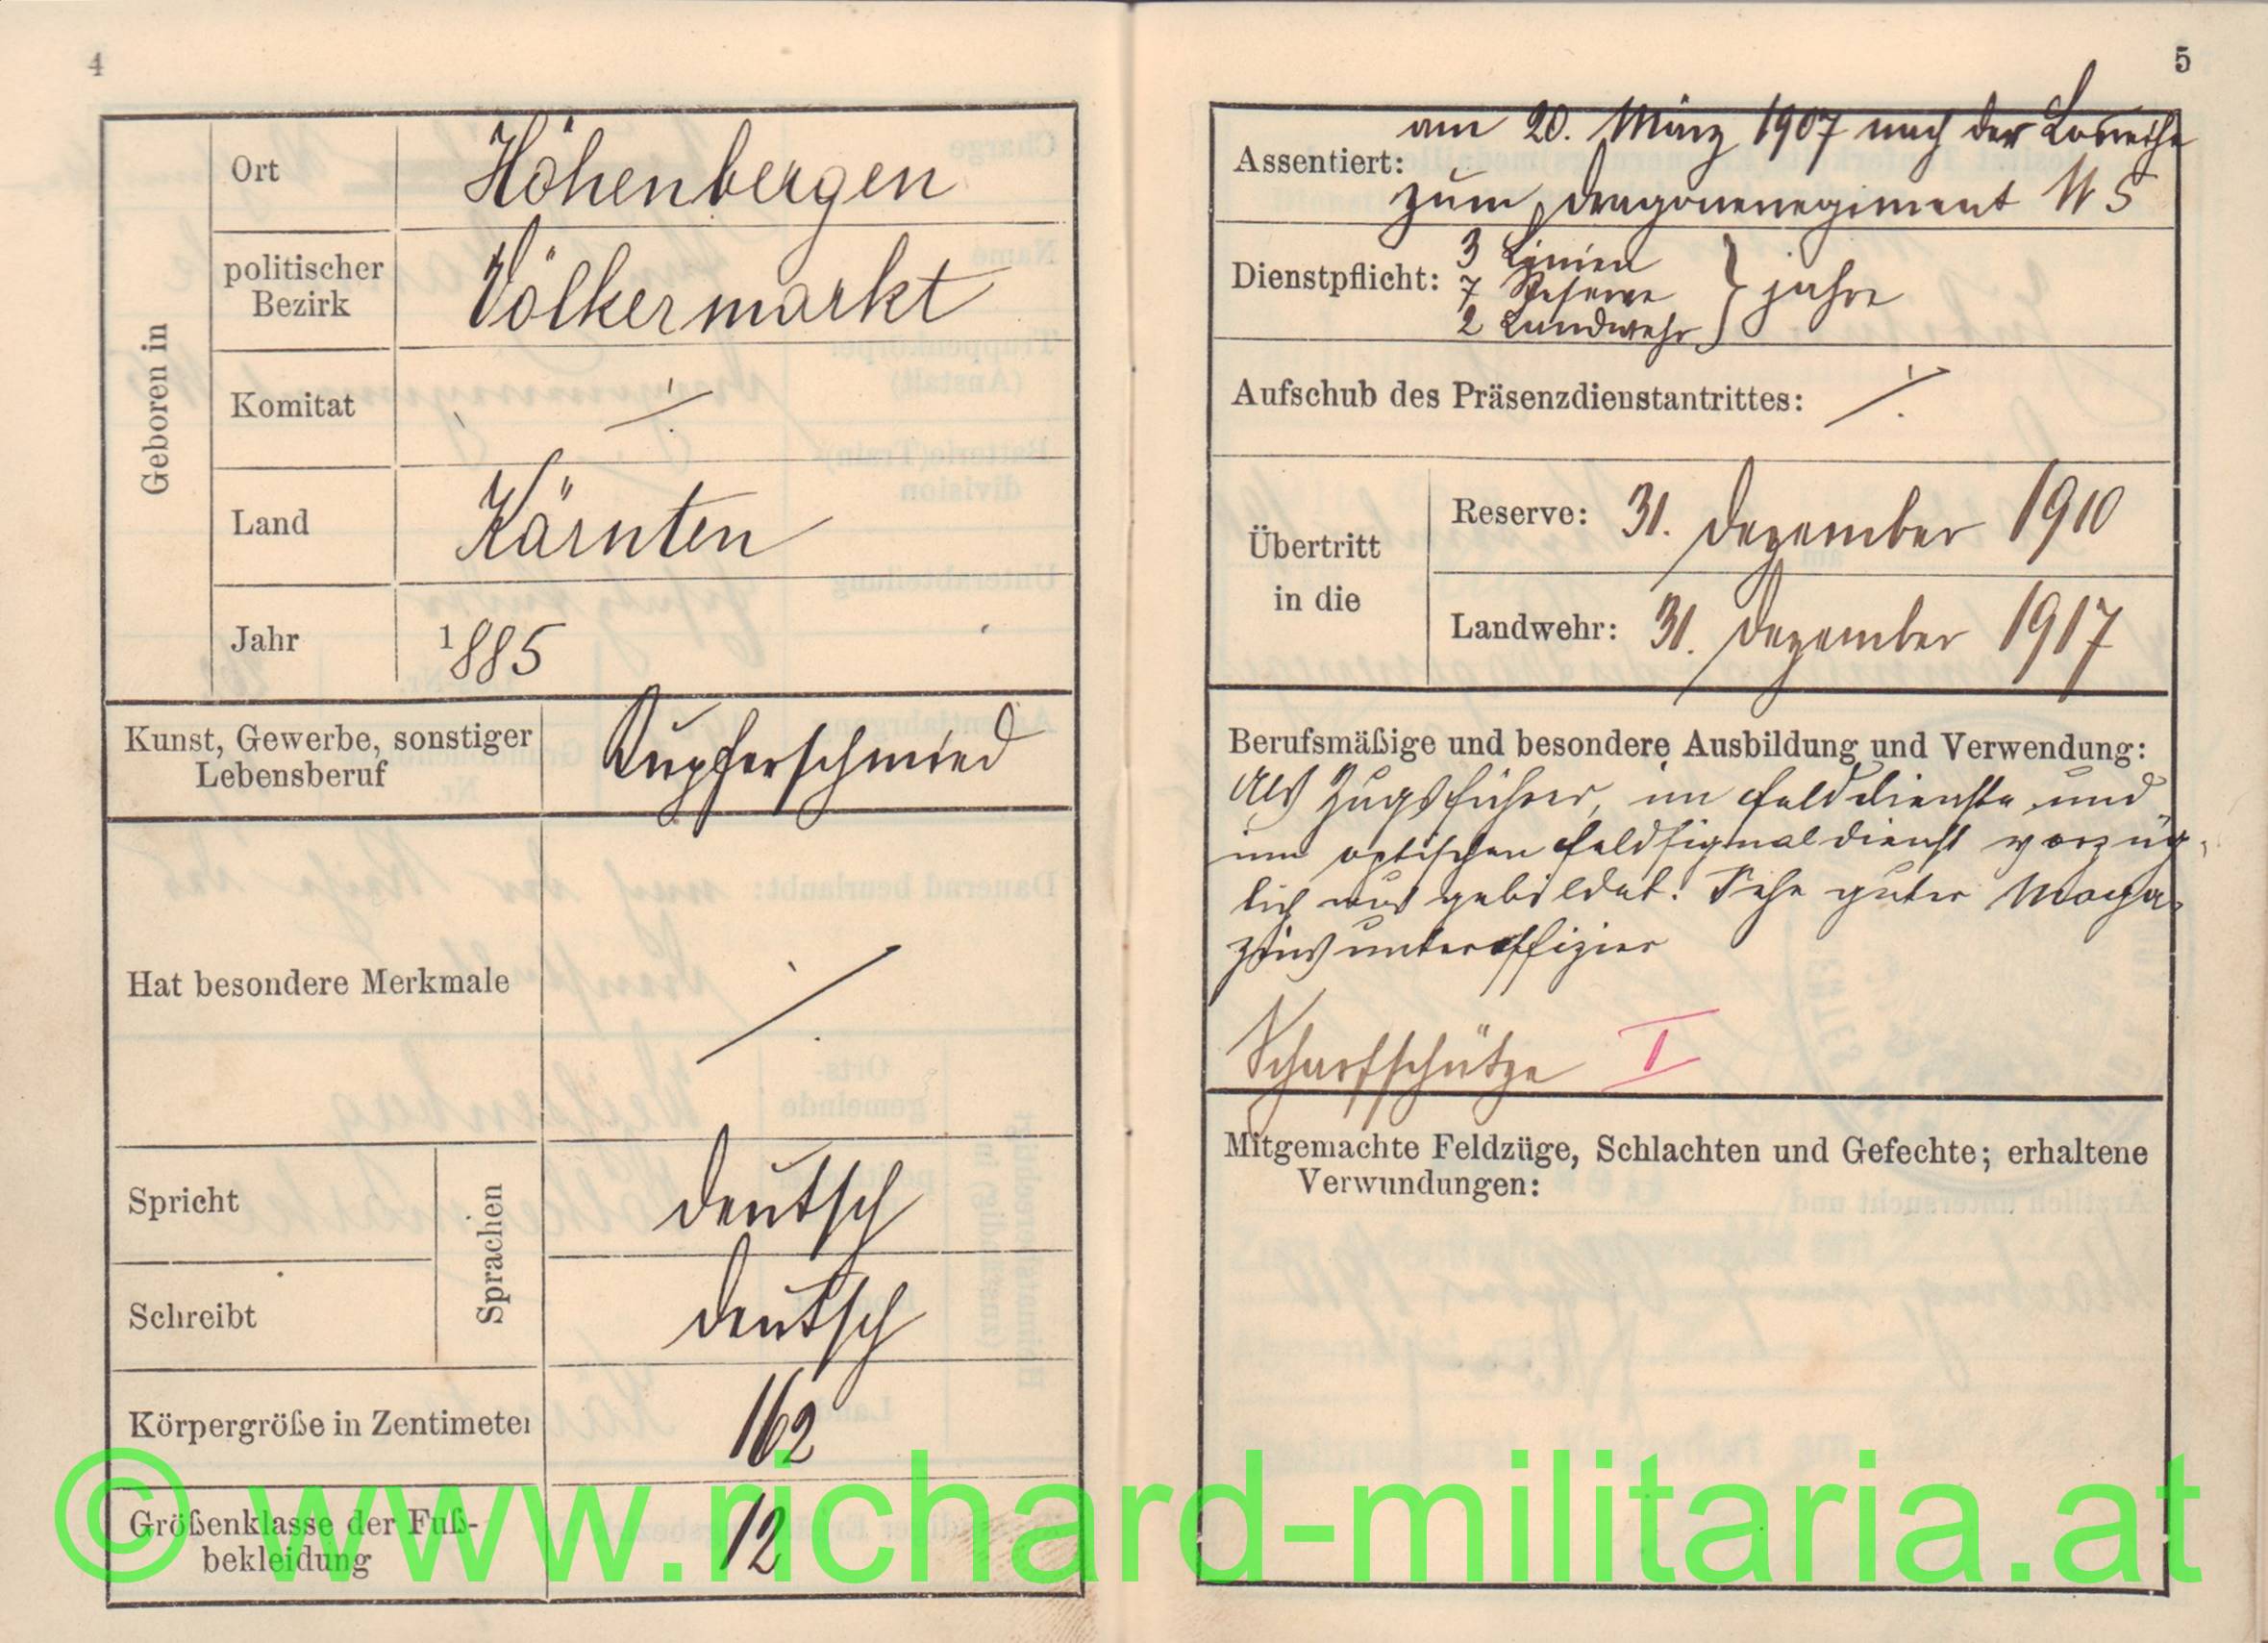 4
Geboren in
Ort
Höhenbergen
politischer
Bezirk
Völkermarkt
Komitat
Land
Kärnten
Jahr
1885
Kunst, Gewerbe, sonstiger
Lebensberuf
Kupferschmied
Hat besondere Merkmale
Sprachen
Spricht
deutsch
Schreibt
deutsch
Körpergröße in Zentimeter
162
Größenklasse der Fuß-
bekleidung
12
5
am 20. März 1907 nach der Losreihe
Assentiert:
zum Dragonerregiment N 5
Dienstpflicht:
3 Linien
7 Reserve
2 Landwehr
} jahre
Aufschub des Präsenzdienstantrittes:
Übertritt
in die
Reserve: 31. Dezember 1910
Landwehr: 31. Dezember 1917
Berufsmäßige und besondere Ausbildung und Verwendung:
Als Zugsführer, im Felddienste und
im optischen Feldsignaldienst vorzüg-
lich ausgebildet. Sehr guter Maga-
zinsunteroffizier
Scharfschütze I
Mitgemachte Feldzüge, Schlachten und Gefechte; erhaltene
Verwundungen:
© www.richard-militaria.at